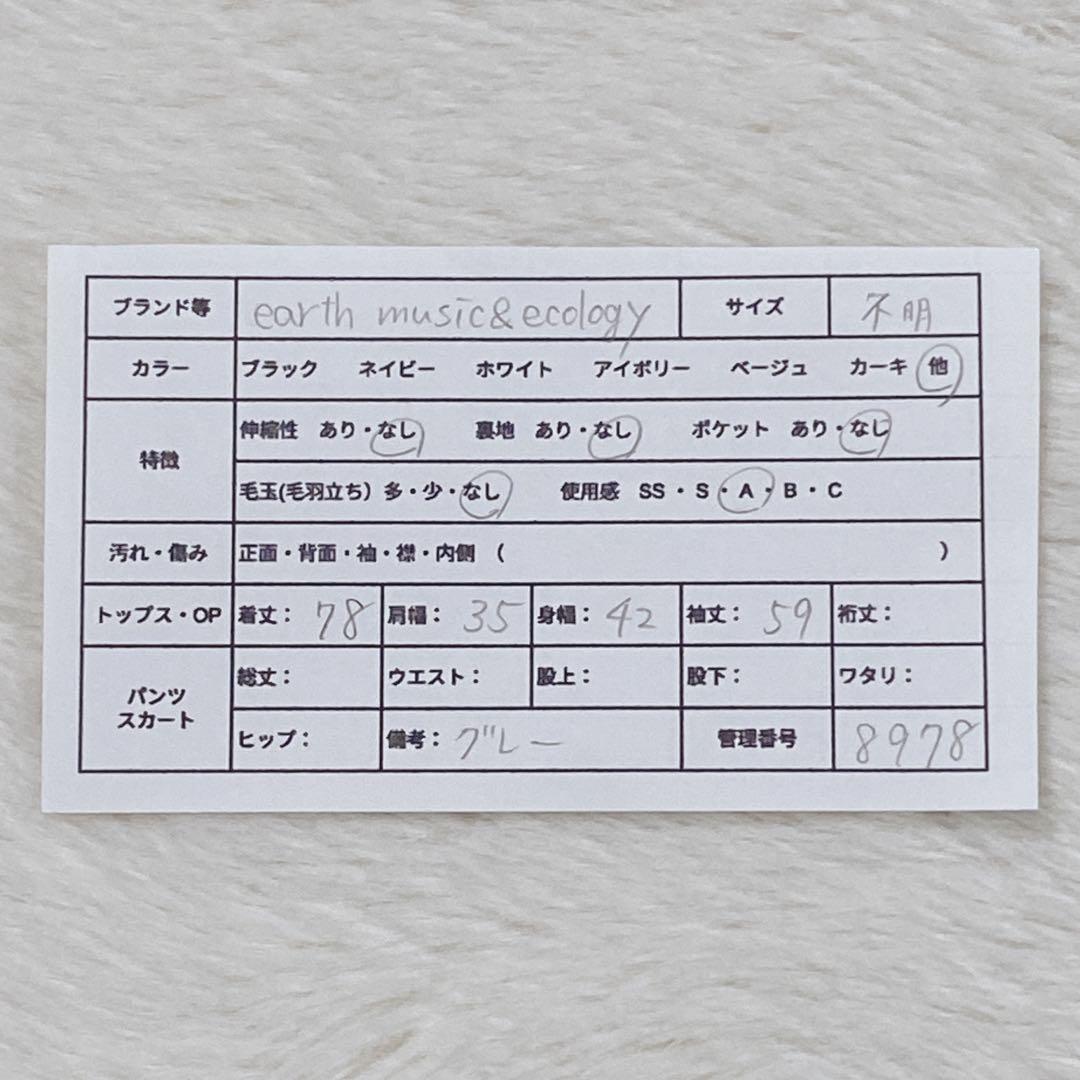 ブランド等 earth music&ecology サイズ 不明
カラー ブラック ネイビー ホワイト アイボリー ベージュ カーキ 他
特徴 伸縮性 あり・なし 裏地 あり・なし ポケット あり・なし
毛玉(毛羽立ち) 多・少・なし 使用感 SS・S・A・B・C
汚れ・傷み 正面・背面・袖・襟・内側 ( )
トップス・OP 着丈: 78 肩幅: 35 身幅: 42 袖丈: 59 裄丈:
パンツ スカート 総丈: ウエスト: 股上: 股下: ワタリ:
ヒップ: 備考: グレー 管理番号 8978